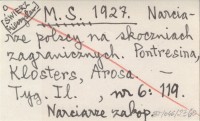 M.S. 1927. Narcia-
rze polscy na skoczniach
zagranicznych. Pontresina,
Klosters, Arosa. —
Tyg. Il., nr 6: 119.
Narciarze zakop.